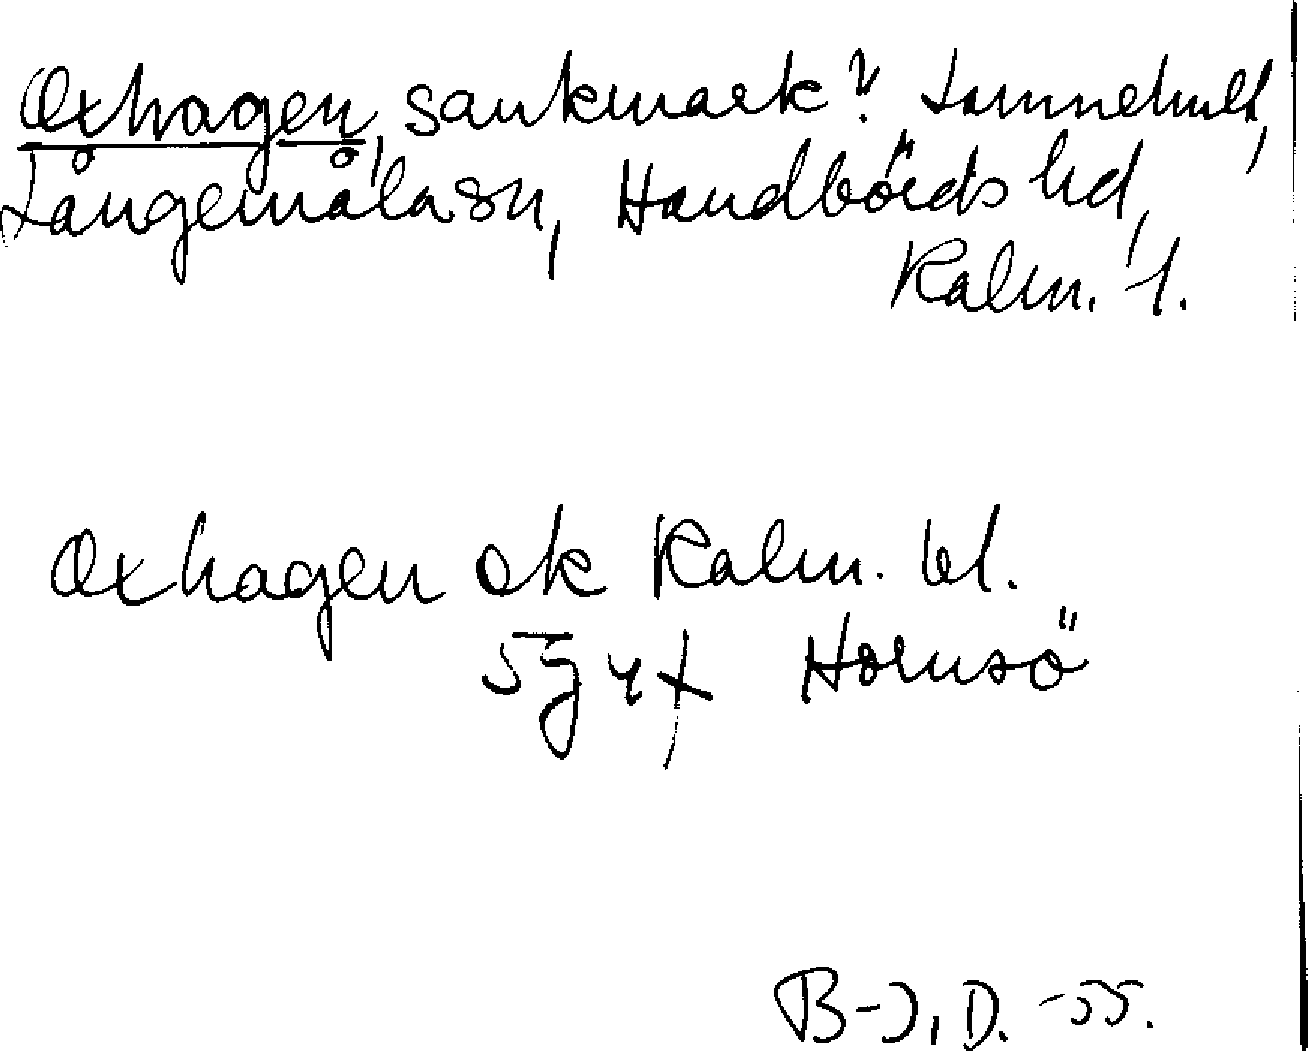 Oxhagen, sankmark? Lomnehult,
Långemåla sn, Handbörds hd,
Kalm. l.
Oxhagen ek Kalm. bl.
5g4f Hornsö
B-J, D. -55.